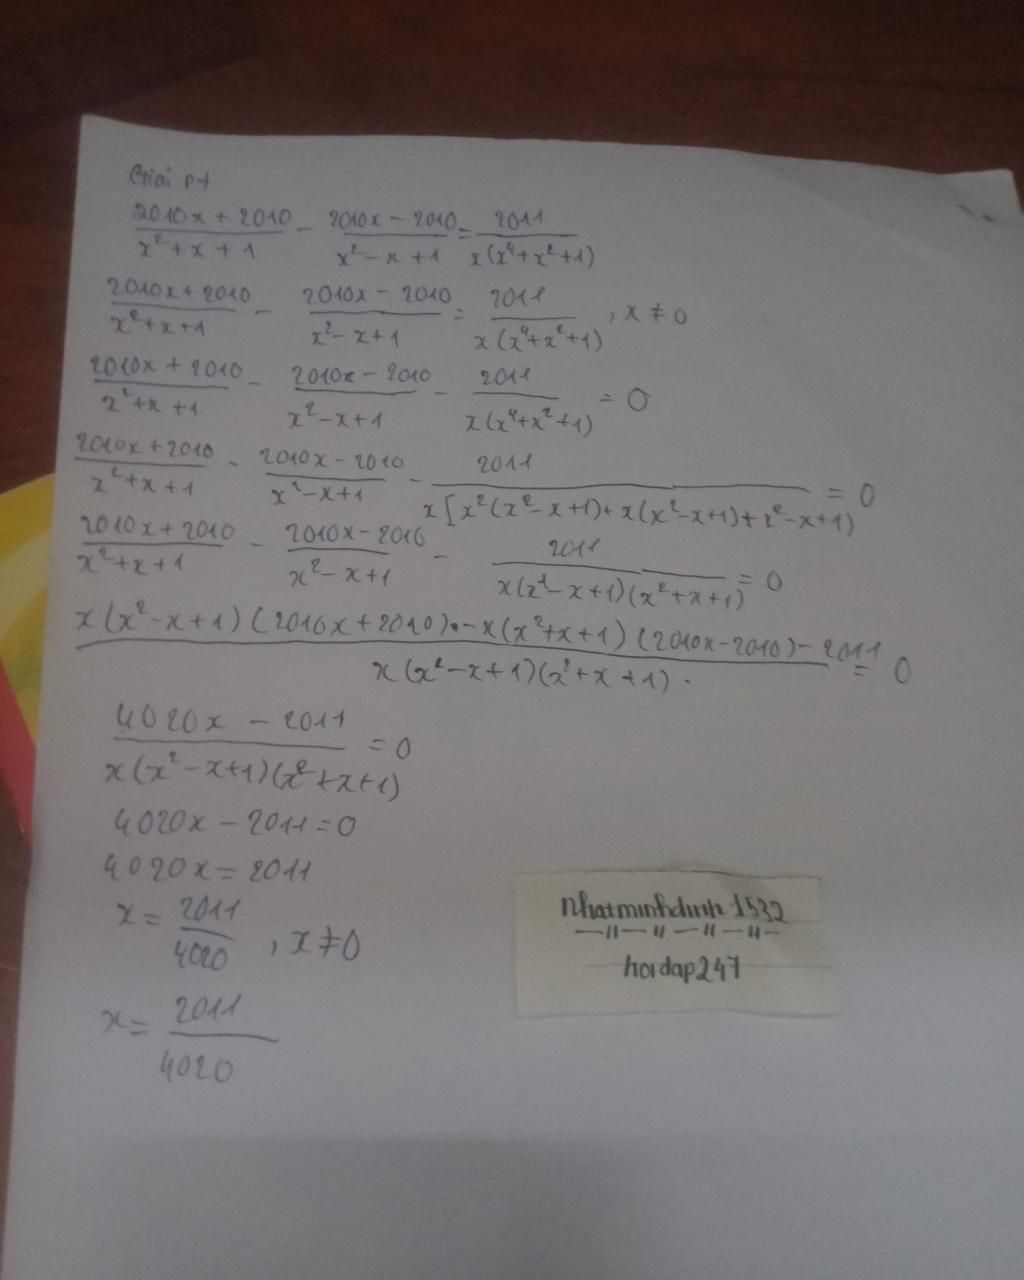 Giải pt
(2010x + 2010)/(x² + x + 1) − (2010x − 2010)/(x² − x + 1) = 2011/(x(x⁴ + x² + 1))
(2010x + 2010)/(x² + x + 1) − (2010x − 2010)/(x² − x + 1) = 2011/(x(x⁴ + x² + 1)) , x ≠ 0
(2010x + 2010)/(x² + x + 1) − (2010x − 2010)/(x² − x + 1) − 2011/(x(x⁴ + x² + 1)) = 0
(2010x + 2010)/(x² + x + 1) − (2010x − 2010)/(x² − x + 1) − 2011/(x[x²(x² − x + 1) + x(x² − x + 1) + x² − x + 1) = 0
(2010x + 2010)/(x² + x + 1) − (2010x − 2010)/(x² − x + 1) − 2011/(x(x² − x + 1)(x² + x + 1)) = 0
(x(x² − x + 1)(2010x + 2010) − x(x² + x + 1)(2010x − 2010) − 2011)/(x(x² − x + 1)(x² + x + 1)) = 0
(4020x − 2011)/(x(x² − x + 1)(x² + x + 1)) = 0
4020x − 2011 = 0
4020x = 2011
x = 2011/4020 , x ≠ 0
x = 2011/4020
nhatminhdinh1532
hoidap247